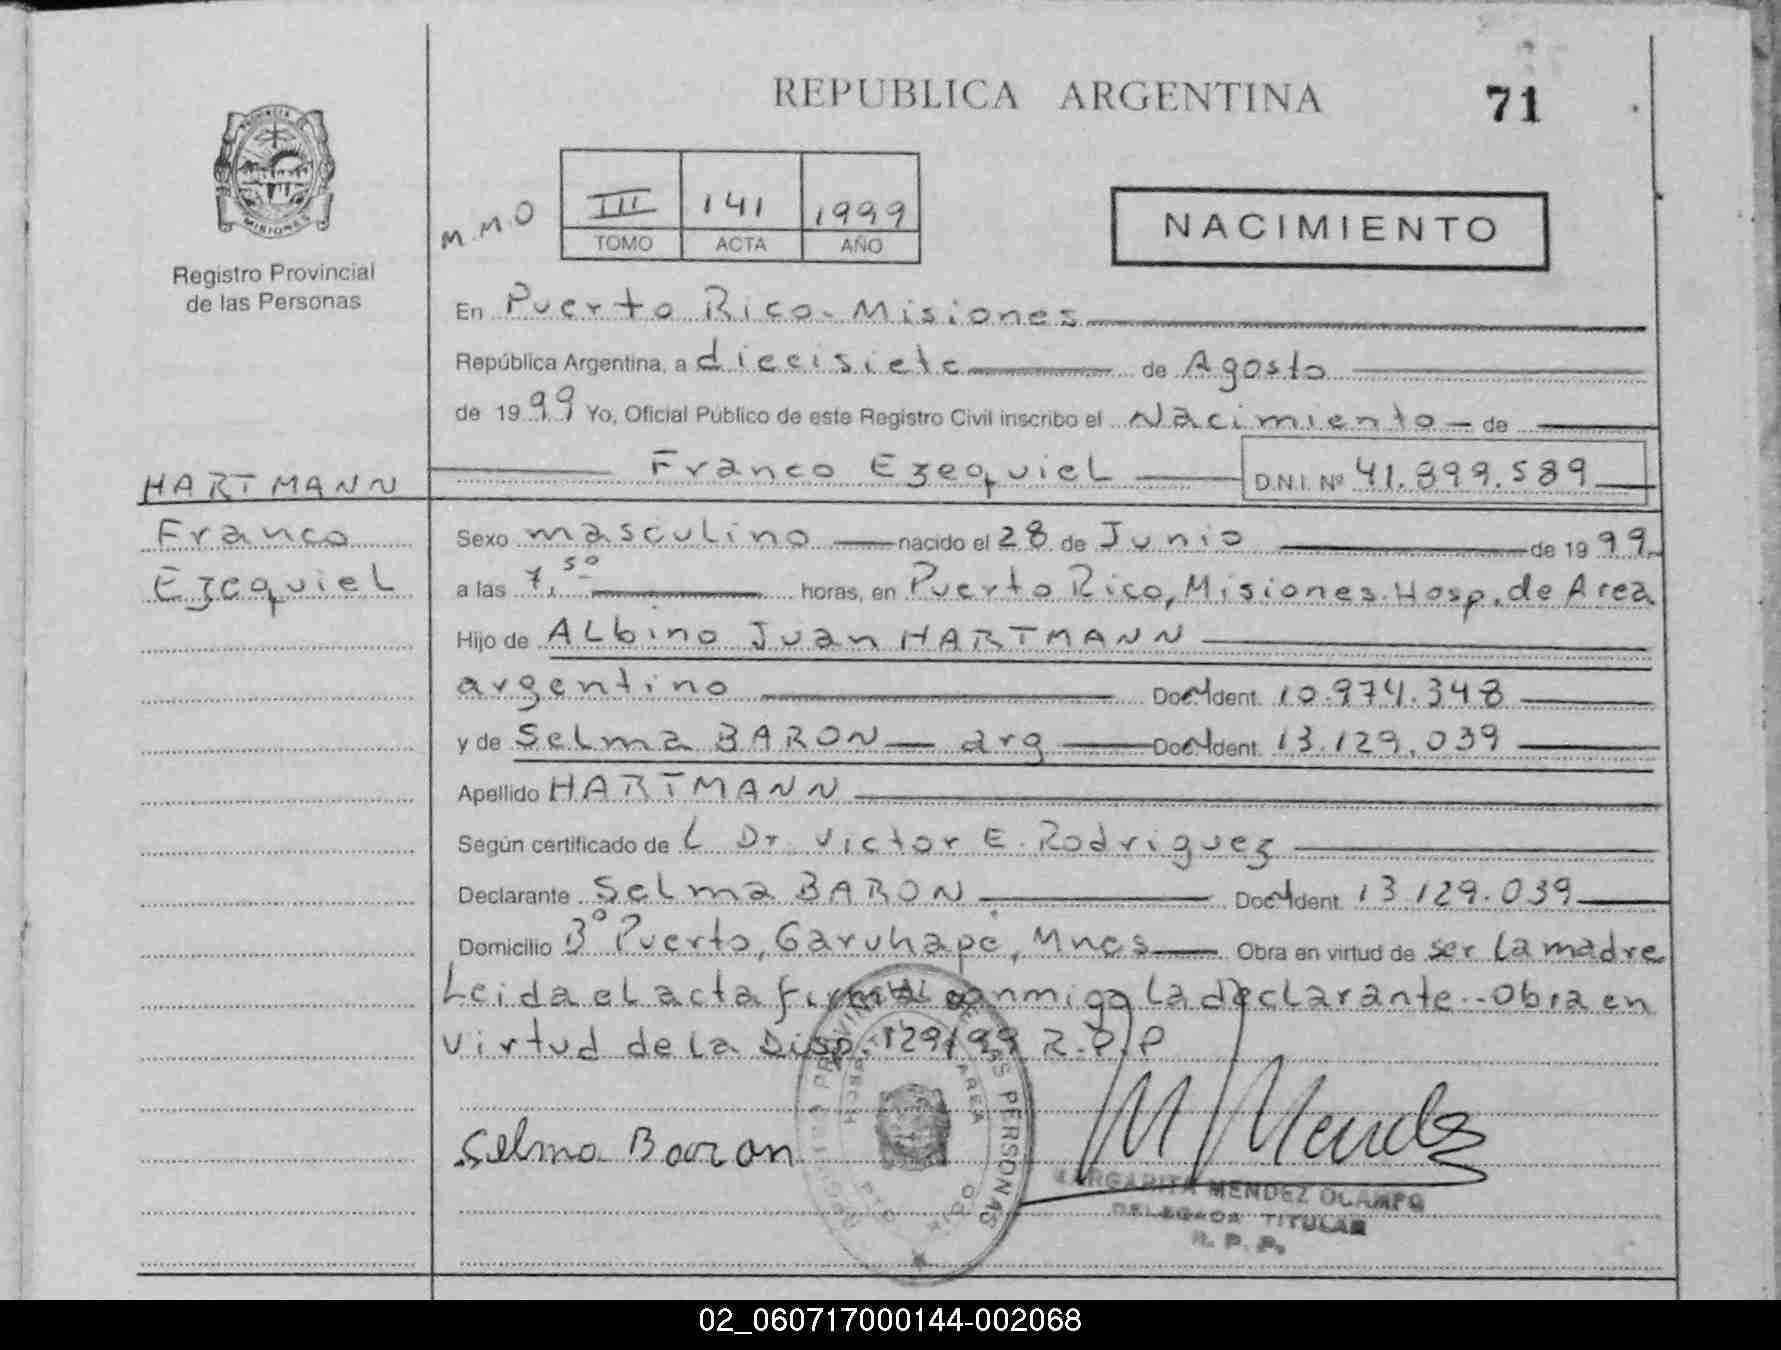 REPUBLICA ARGENTINA 71
M.M.O III 141 1999
TOMO ACTA AÑO
NACIMIENTO
MISIONES
Registro Provincial
de las Personas
HARTMANN
Franco
Ezequiel
En Puerto Rico - Misiones
República Argentina, a diecisiete de Agosto
de 1999 Yo, Oficial Público de este Registro Civil inscribo el Nacimiento de
Franco Ezequiel D.N.I. Nº 41.899.589
Sexo masculino nacido el 28 de Junio de 1999
a las 7,50 horas, en Puerto Rico, Misiones. Hosp. de Area
Hijo de Albino Juan HARTMANN
argentino Doc. Ident. 10.974.348
y de Selma BARON arg Doc. Ident. 13.129.039
Apellido HARTMANN
Según certificado de L Dr. Victor E. Rodriguez
Declarante Selma BARON Doc. Ident. 13.129.039
Domicilio Bº Puerto, Garuhapé, Mnes Obra en virtud de ser la madre
Leida el acta firma conmigo la declarante.- Obra en
virtud de la Disp. 129/99 R.P.P
Selma Baron
M Mendez
MARGARITA MENDEZ OCAMPO
DELEGADA TITULAR
R. P. P.
02_060717000144-002068